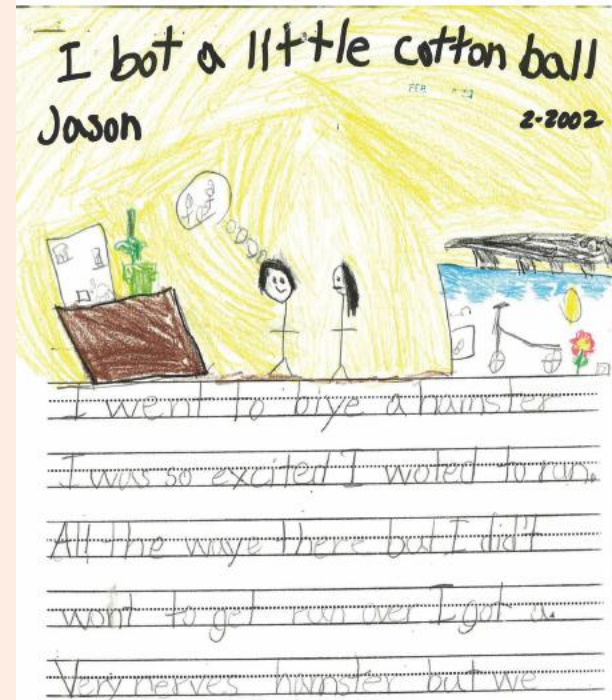 I bot a little cotton ball
FEB
Jason
2-2002
I went to biye a humster
I was so excited I woted to run.
All the waye there but I did't
wont to get run over I got a
Very nerves humster but we